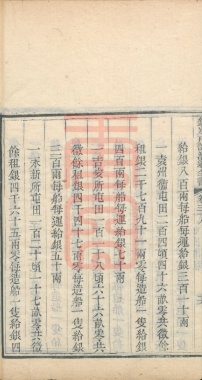 給銀八百兩每船每運給銀三百一十兩
一袁州衛屯田二百四頃四十六畝零共徵
租銀二千七百九十一兩零每造船一隻給銀
四百兩每船每運給銀七十兩
一吉安所屯田一百一十八頃六十六畝零共
徵餘租銀四千四十七兩零每造船一隻給銀
三百兩每船每運給銀五十兩
一永新所屯田一百二十頃一十七畝零共徵
餘租銀四千六十五兩零每造船一隻給銀四